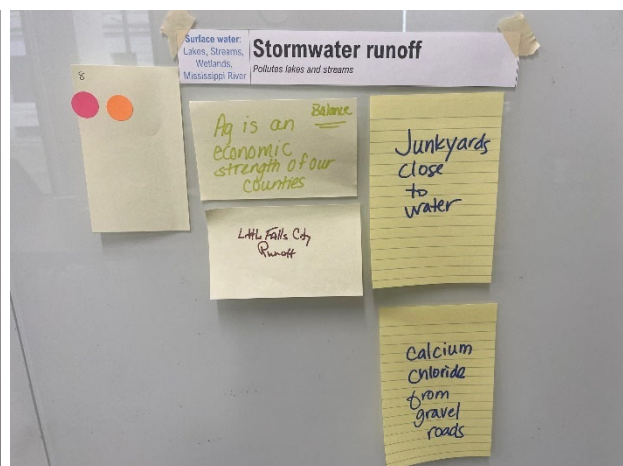 Surface water:
Lakes, Streams,
Wetlands,
Mississippi River
Stormwater runoff
Pollutes lakes and streams
8
Balance
Ag is an
economic
strength of our
counties
Little Falls City
Runoff
Junkyards
close
to
water
Calcium
Chloride
from
gravel
roads